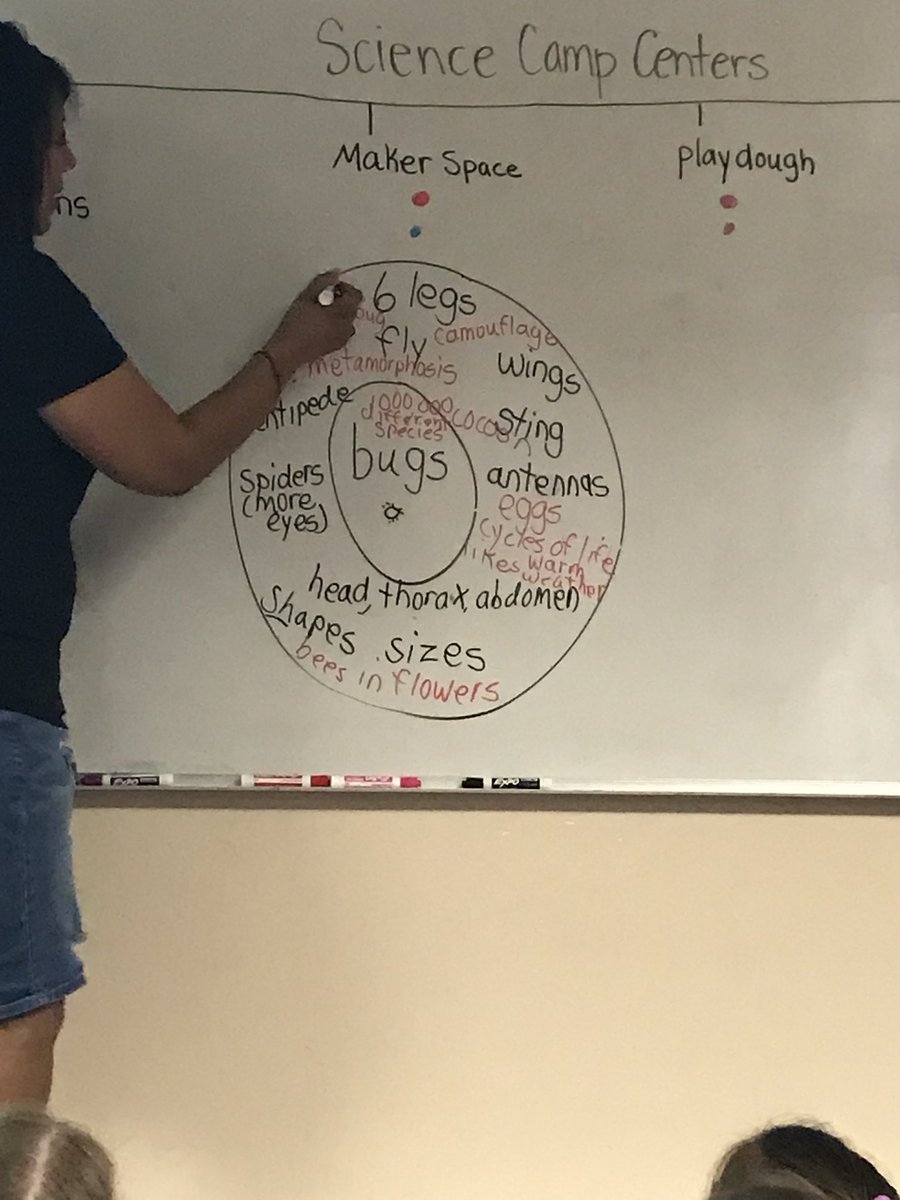 Science Camp Centers
Maker Space
playdough
ns
6 legs
bug
fly
camouflage
metamorphosis
wings
ntipede
1000 000
different
species
cocoon
Sting
bugs
Spiders
(more
eyes)
antennas
eggs
Cycles of life
likes warm
weather
head, thorax, abdomen
Shapes
sizes
bees in flowers
EXPO
EXPO